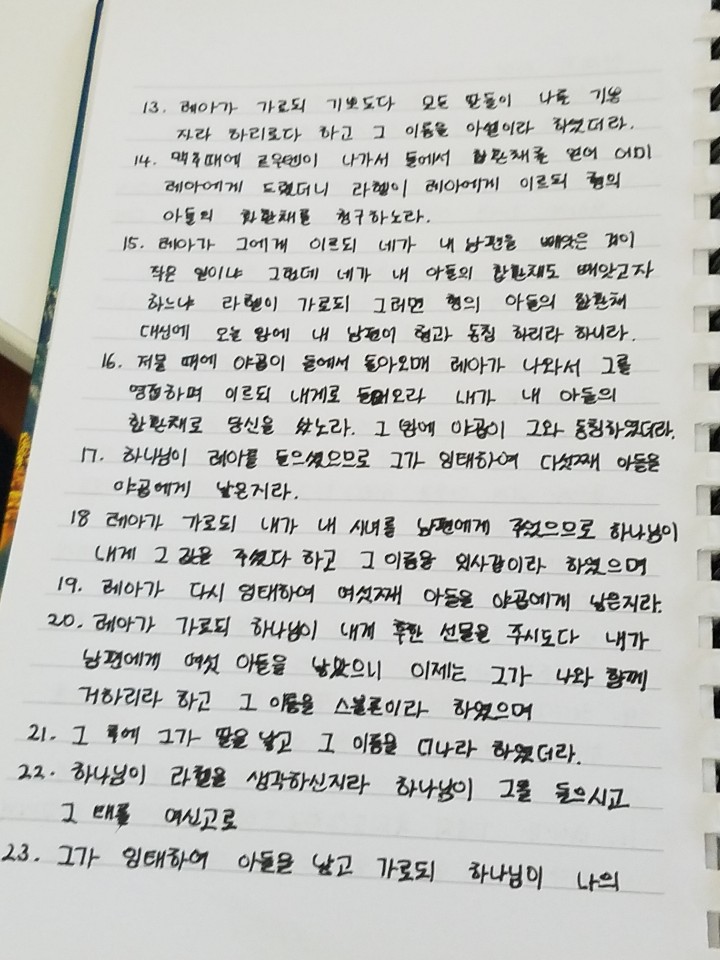 13. 레아가 가로되 기쁘도다 모든 딸들이 나를 기쁜
자라 하리로다 하고 그 이름을 아셀이라 하였더라.
14. 맥추때에 르우벤이 나가서 들에서 합환채를 얻어 어미
레아에게 드렸더니 라헬이 레아에게 이르되 형의
아들의 합환채를 청구하노라.
15. 레아가 그에게 이르되 네가 내 남편을 빼앗은 것이
작은 일이냐 그런데 네가 내 아들의 합환채도 빼앗고자
하느냐 라헬이 가로되 그러면 형의 아들의 합환채
대신에 오늘 밤에 내 남편이 형과 동침 하리라 하니라.
16. 저물 때에 야곱이 들에서 돌아오매 레아가 나와서 그를
영접하며 이르되 내게로 들어오라 내가 내 아들의
합환채로 당신을 샀노라. 그 밤에 야곱이 그와 동침하였더라.
17. 하나님이 레아를 들으셨으므로 그가 잉태하여 다섯째 아들을
야곱에게 낳은지라.
18 레아가 가로되 내가 내 시녀를 남편에게 주었으므로 하나님이
내게 그 값을 주셨다 하고 그 이름을 잇사갈이라 하였으며
19. 레아가 다시 잉태하여 여섯째 아들을 야곱에게 낳은지라.
20. 레아가 가로되 하나님이 내게 후한 선물을 주시도다 내가
남편에게 여섯 아들을 낳았으니 이제는 그가 나와 함께
거하리라 하고 그 이름을 스불론이라 하였으며
21. 그 후에 그가 딸을 낳고 그 이름을 디나라 하였더라.
22. 하나님이 라헬을 생각하신지라 하나님이 그를 들으시고
그 태를 여신고로
23. 그가 잉태하여 아들을 낳고 가로되 하나님이 나의